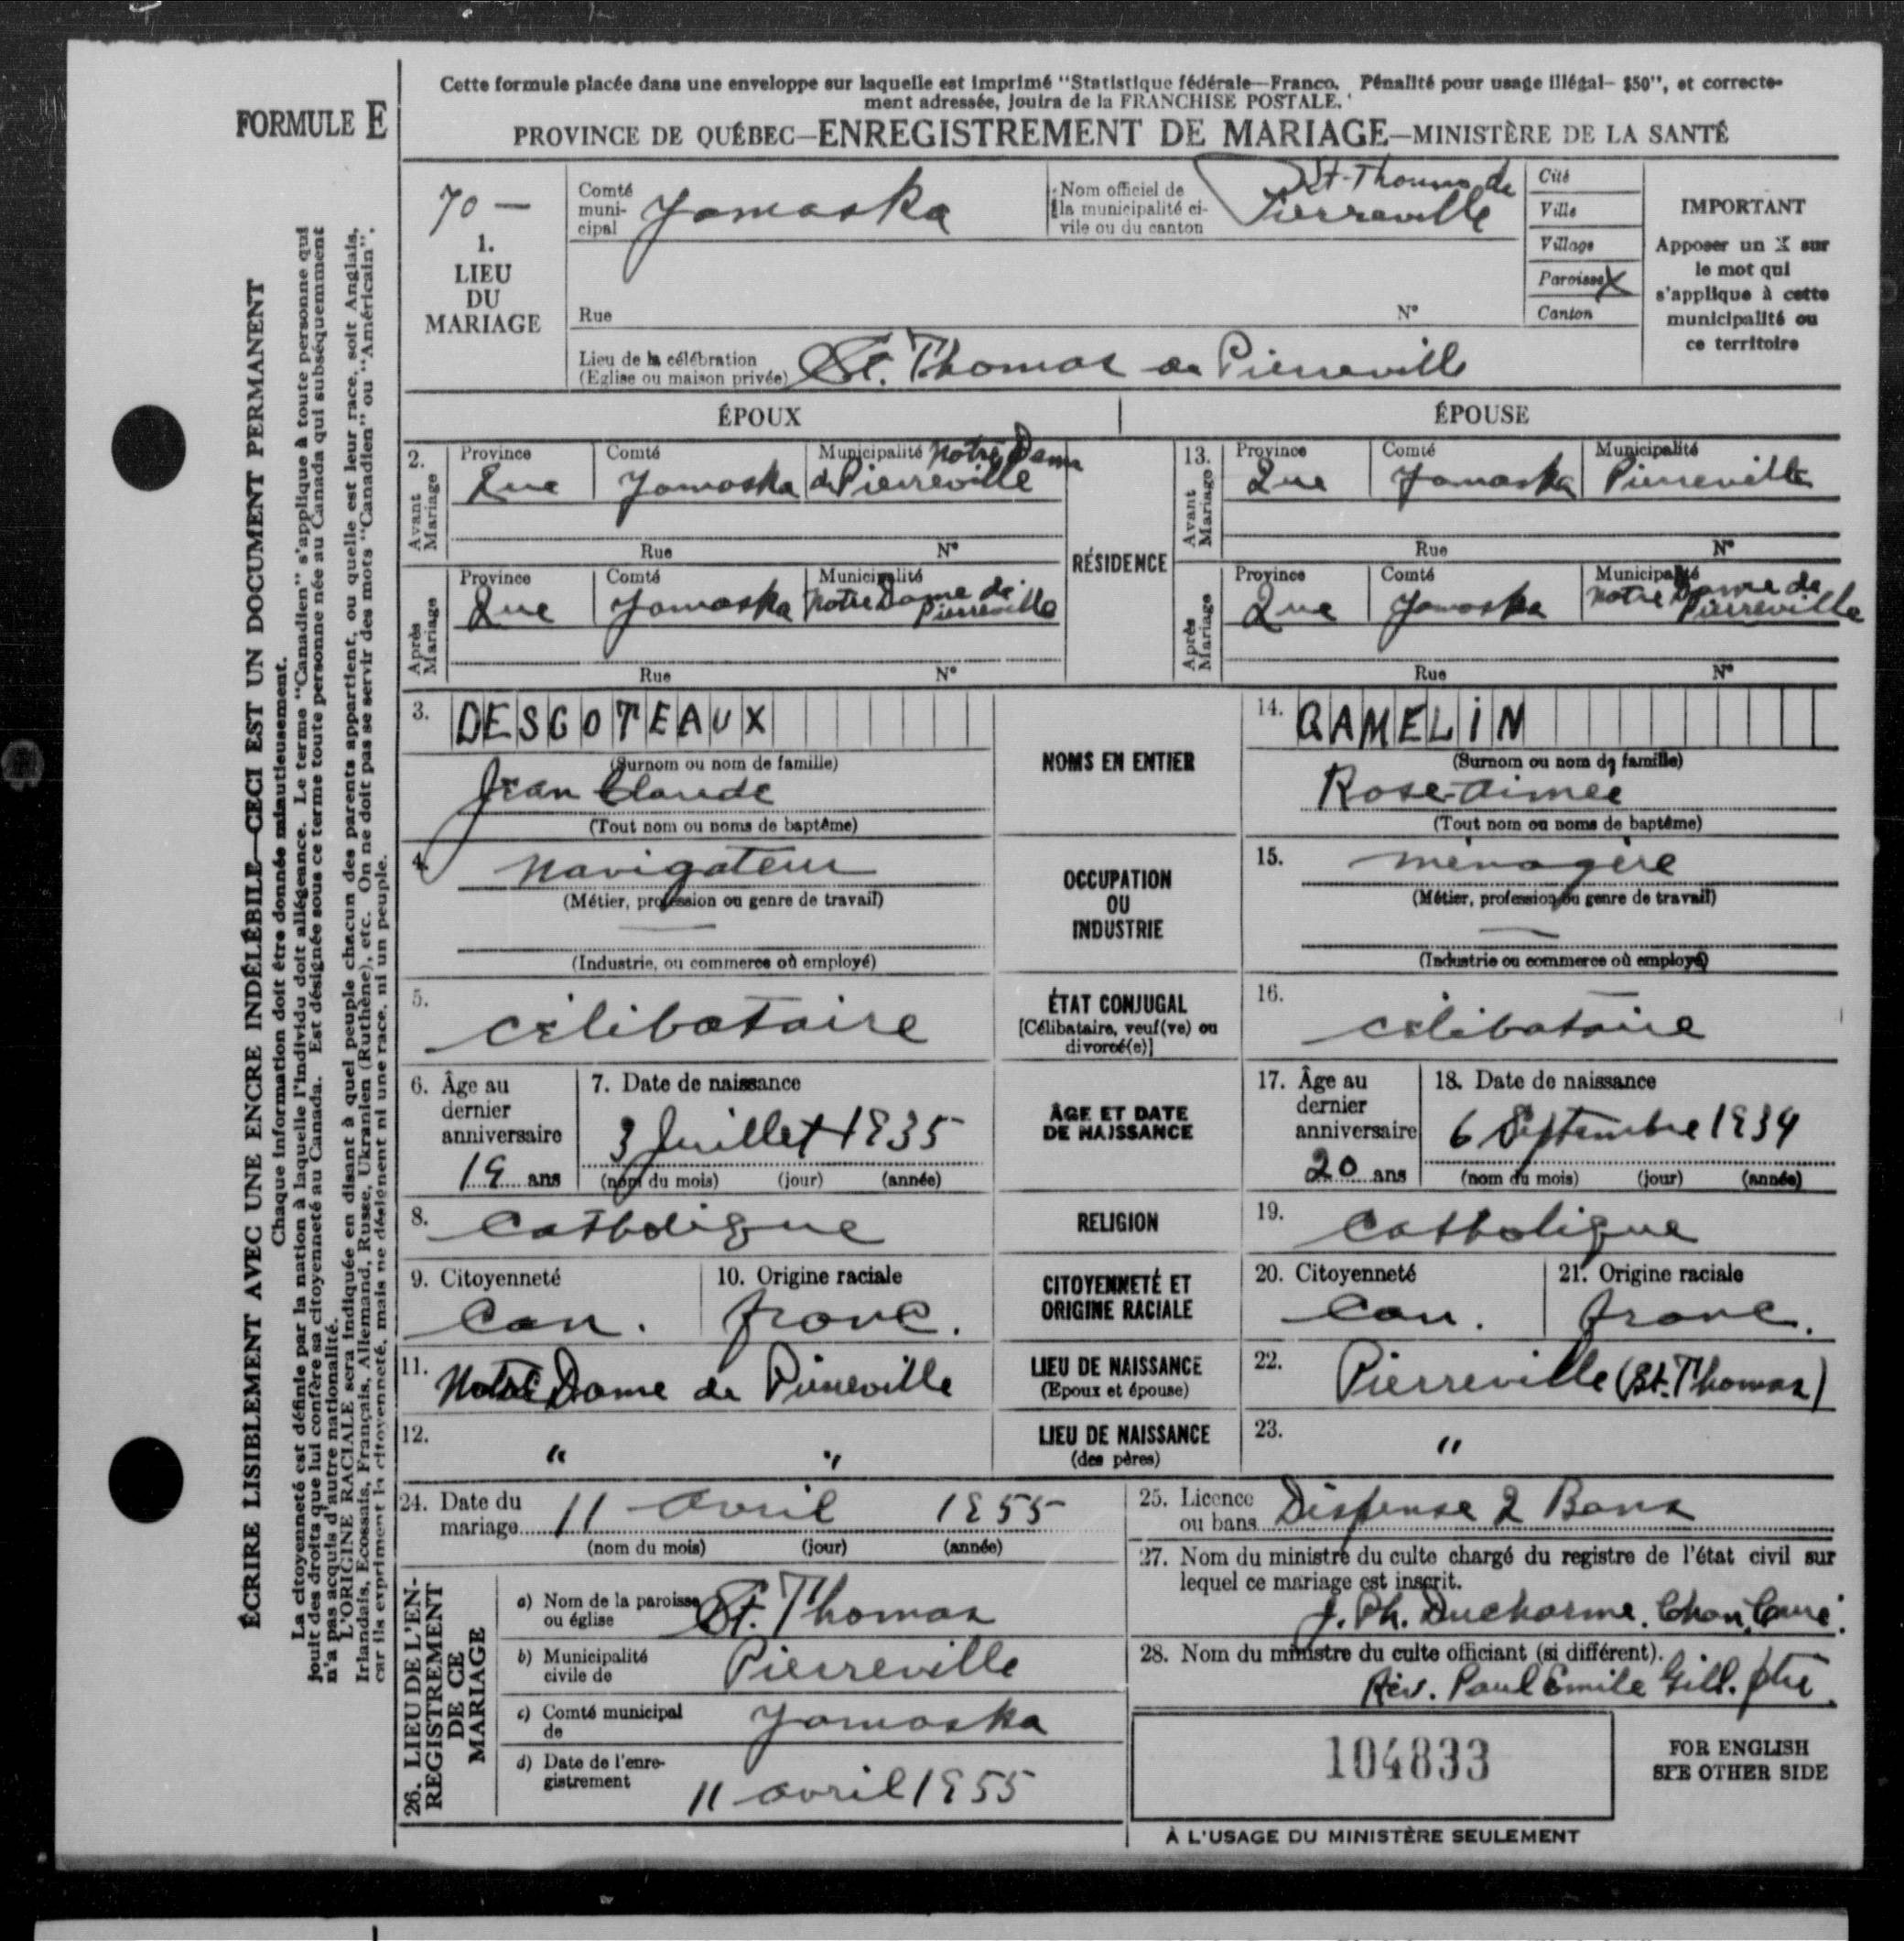 Cette formule placée dans une enveloppe sur laquelle est imprimé "Statistique fédérale—Franco. Pénalité pour usage illégal- $50", et correcte-
ment adressée, jouira de la FRANCHISE POSTALE.
FORMULE E
PROVINCE DE QUÉBEC—ENREGISTREMENT DE MARIAGE—MINISTÈRE DE LA SANTÉ
ÉCRIRE LISIBLEMENT AVEC UNE ENCRE INDÉLÉBILE—CECI EST UN DOCUMENT PERMANENT
Chaque information doit être donnée minutieusement.
La citoyenneté est définie par la nation à laquelle l'individu doit allégeance. Le terme "Canadien" s'applique à toute personne qui
jouit des droits que lui confère sa citoyenneté au Canada. Est désignée sous ce terme toute personne née au Canada qui subséquement
n'a pas acquis d'autre nationalité.
L'ORIGINE RACIALE sera indiquée en disant à quel peuple chacun des parents appartient, ou quelle est leur race, soit Anglais,
Irlandais, Ecossais, Français, Allemand, Russe, Ukranien (Ruthène), etc. On ne doit pas se servir des mots "Canadien" ou "Américain",
car ils expriment la citoyenneté, mais ne désignent ni une race, ni un peuple.
70 —
1.
LIEU
DU
MARIAGE
Comté
muni-
cipal Yamaska
Nom officiel de
la municipalité ci-
vile ou du canton
St-Thomas de
Pierreville
Cité
Ville
Village
Paroisse X
Canton
IMPORTANT
Apposer un X sur
le mot qui
s'applique à cette
municipalité ou
ce territoire
Rue Nº
Lieu de la célébration
(Eglise ou maison privée) St. Thomas de Pierreville
ÉPOUX ÉPOUSE
2. Avant Mariage
Province Comté Municipalité Notre Dame
Que Yamaska de Pierreville
Rue Nº
Après Mariage
Province Comté Municipalité
Que Yamaska Notre Dame de
Pierreville
Rue Nº
RÉSIDENCE
13. Avant Mariage
Province Comté Municipalité
Que Yamaska Pierreville
Rue Nº
Après Mariage
Province Comté Municipalité
Que Yamaska Notre Dame de
Pierreville
Rue Nº
3. DESCOTEAUX
(Surnom ou nom de famille)
Jean Claude
(Tout nom ou noms de baptême)
NOMS EN ENTIER
14. GAMELIN
(Surnom ou nom de famille)
Rose-Aimée
(Tout nom ou noms de baptême)
4. Navigateur
(Métier, profession ou genre de travail)
—
(Industrie, ou commerce où employé)
OCCUPATION
OU
INDUSTRIE
15. ménagère
(Métier, profession ou genre de travail)
—
(Industrie ou commerce où employé)
5. célibataire
ÉTAT CONJUGAL
[Célibataire, veuf(ve) ou
divorcé(e)]
16. célibataire
6. Âge au
dernier
anniversaire
19 ans
7. Date de naissance
3 Juillet 1935
(nom du mois) (jour) (année)
ÂGE ET DATE
DE NAISSANCE
17. Âge au
dernier
anniversaire
20 ans
18. Date de naissance
6 Septembre 1934
(nom du mois) (jour) (année)
8. Catholique
RELIGION
19. Catholique
9. Citoyenneté
Can.
10. Origine raciale
franc.
CITOYENNETÉ ET
ORIGINE RACIALE
20. Citoyenneté
Can.
21. Origine raciale
franc.
11. Notre Dame de Pierreville
LIEU DE NAISSANCE
(Epoux et épouse)
22. Pierreville (St. Thomas)
12. " "
LIEU DE NAISSANCE
(des pères)
23. "
24. Date du
mariage 11 avril 1955
(nom du mois) (jour) (année)
25. Licence
ou bans Dispense 2 Bans
26. LIEU DE L'EN-
REGISTREMENT
DE CE
MARIAGE
a) Nom de la paroisse
ou église St. Thomas
b) Municipalité
civile de Pierreville
c) Comté municipal
de Yamaska
d) Date de l'enre-
gistrement 11 avril 1955
27. Nom du ministre du culte chargé du registre de l'état civil sur
lequel ce mariage est inscrit.
J. Ph. Ducharme, Chan. Curé.
28. Nom du ministre du culte officiant (si différent).
Rév. Paul Emile Gill. ptre
104833
FOR ENGLISH
SEE OTHER SIDE
À L'USAGE DU MINISTÈRE SEULEMENT